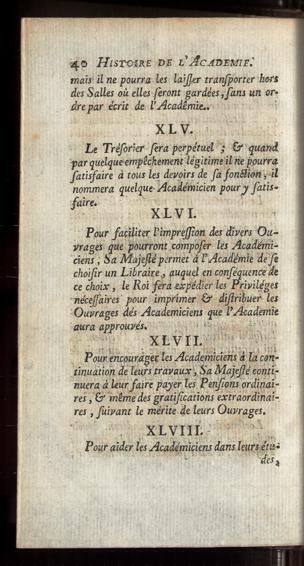 40 HISTOIRE DE L'ACADEMIE.
mais il ne pourra les laisser transporter hors
des Salles où elles seront gardées, sans un or-
dre par écrit de l'Académie..
XLV.
Le Trésorier sera perpétuel ; & quand
par quelque empêchement légitime il ne pourra
satisfaire à tous les devoirs de sa fonction, il
nommera quelque Académicien pour y satis-
faire.
XLVI.
Pour faciliter l'impression des divers Ou-
vrages que pourront composer les Académi-
ciens, Sa Majesté permet à l'Académie de se
choisir un Libraire, auquel en conséquence de
ce choix, le Roi sera expédier les Priviléges
nécessaires pour imprimer & distribuer les
Ouvrages des Academiciens que l'Academie
aura approuvés.
XLVII.
Pour encourager les Academiciens à la con-
tinuation de leurs travaux, Sa Majesté conti-
nuera à leur faire payer les Pensions ordinai-
res, & même des gratifications extraordinai-
res, suivant le mérite de leurs Ouvrages.
XLVIII.
Pour aider les Académiciens dans leurs étu-
des,